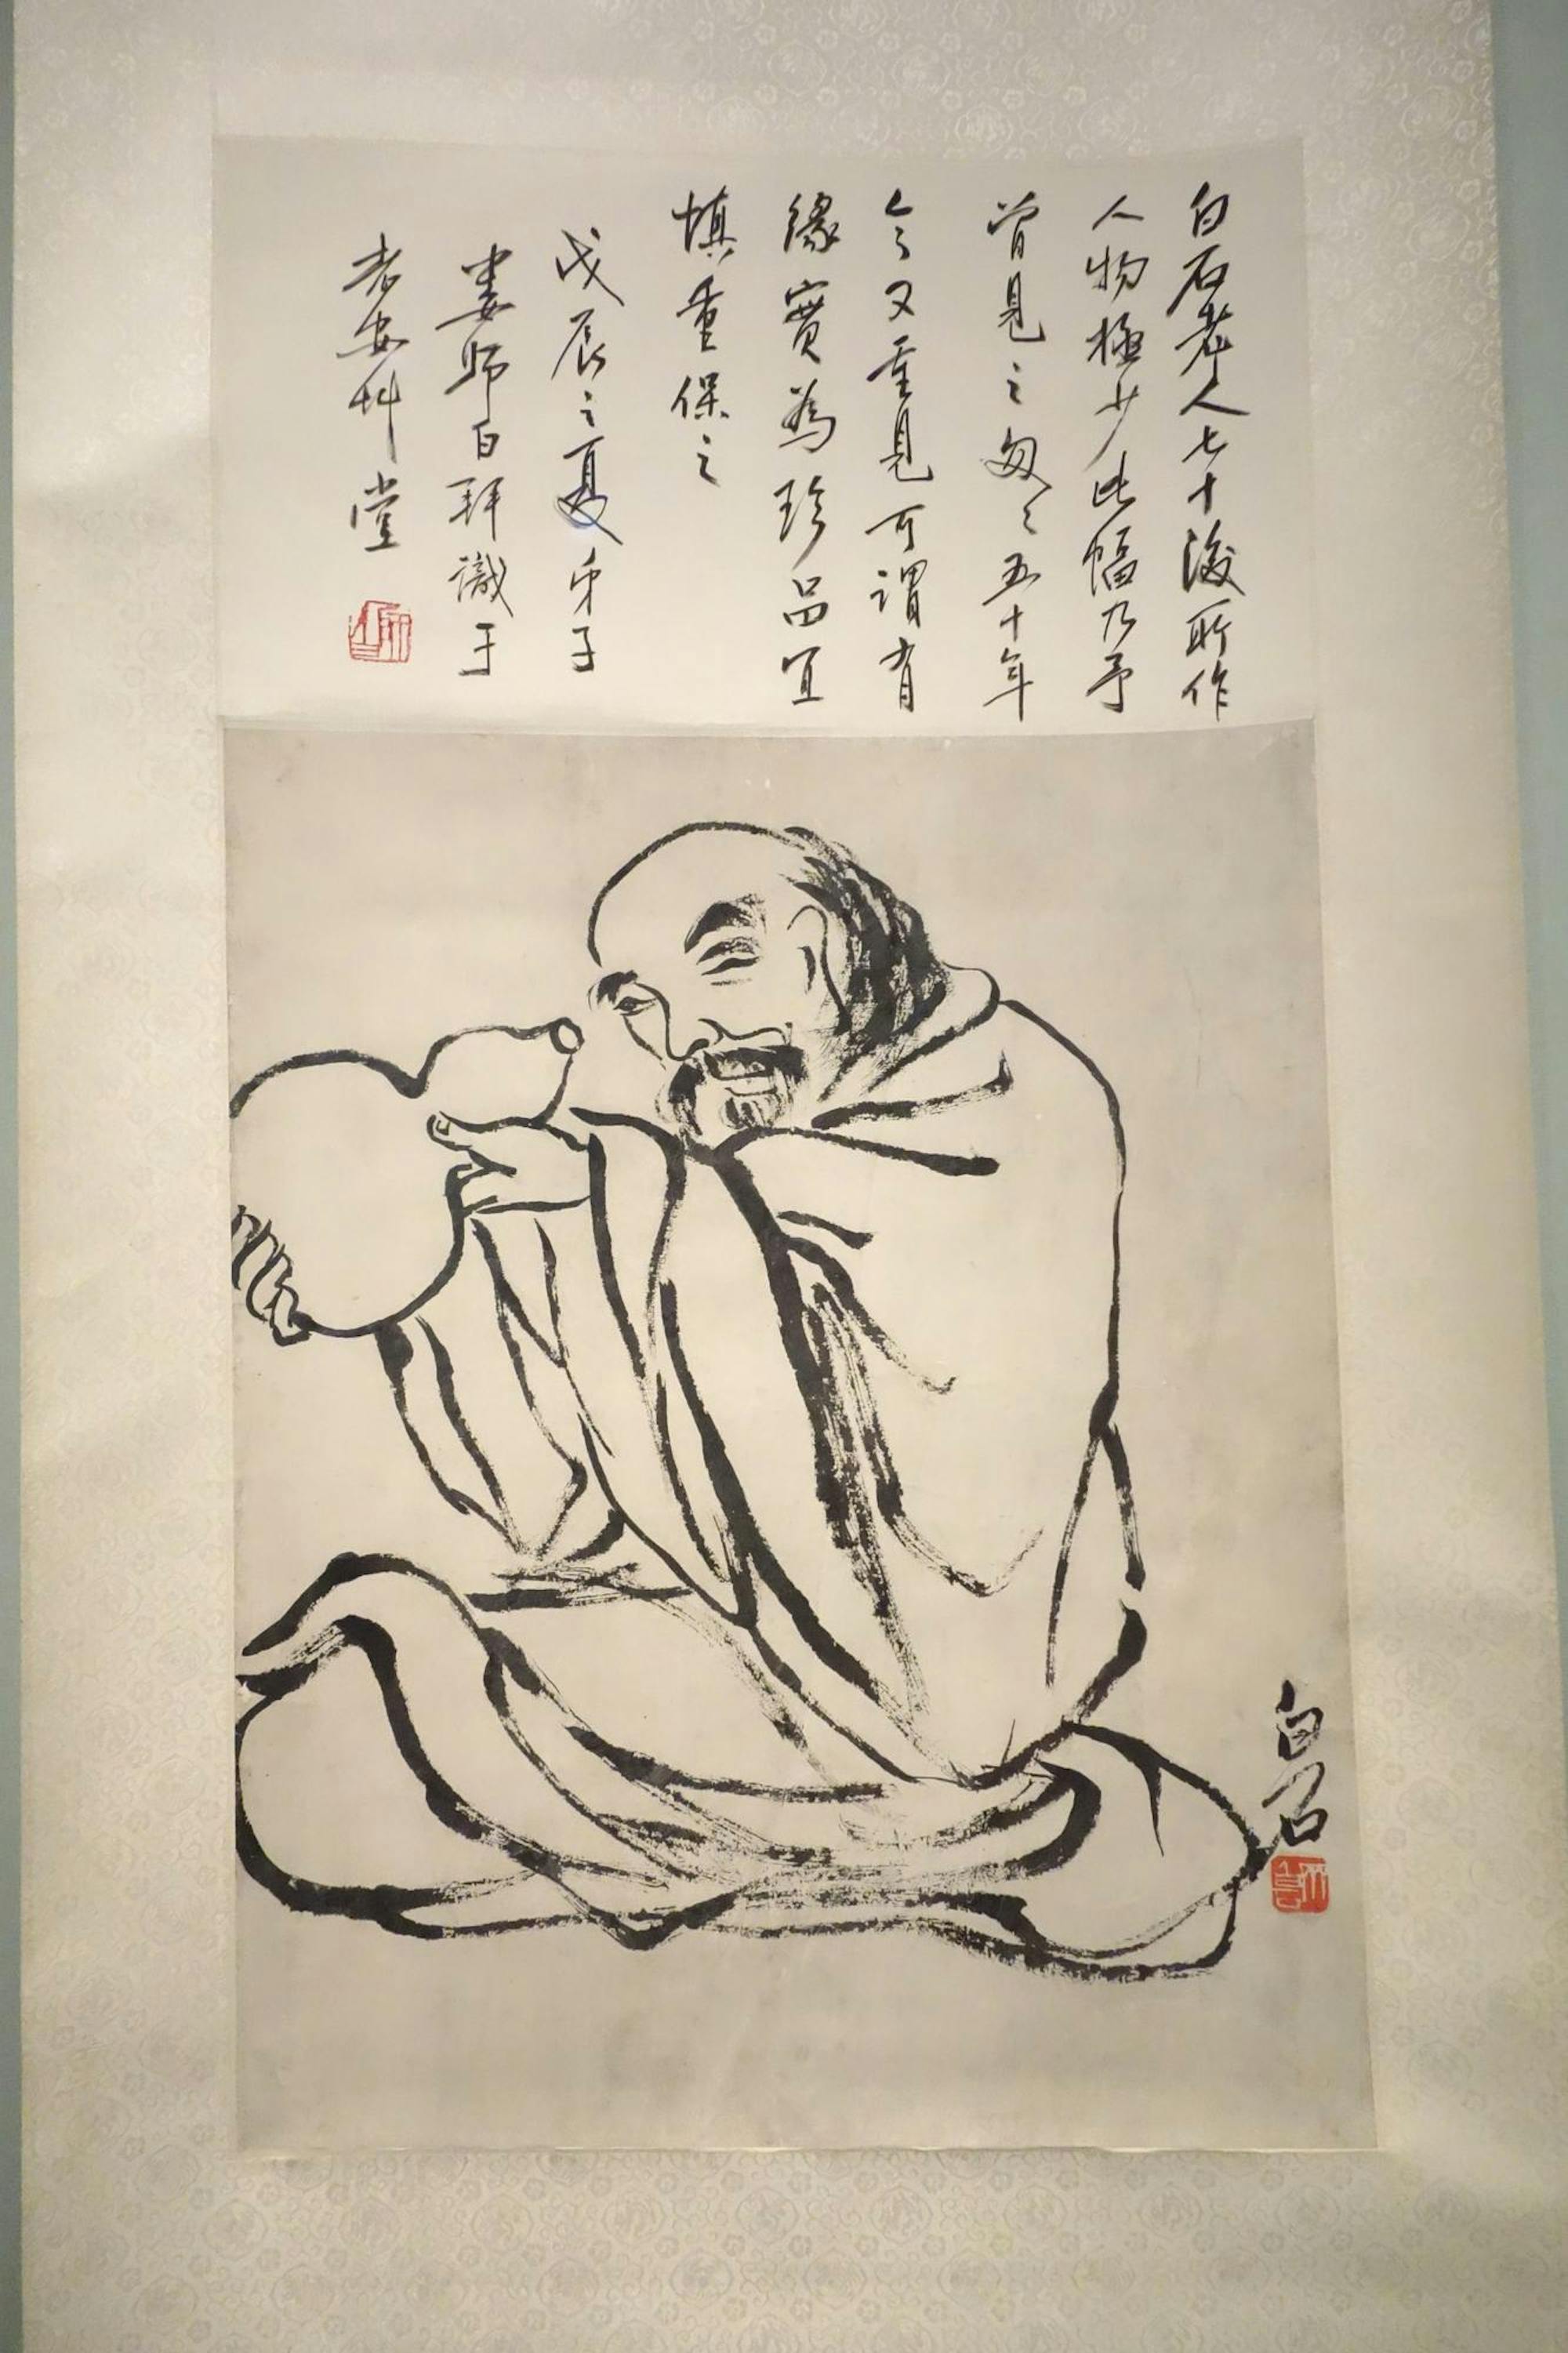 白石老人七十後所作
人物極少此幅乃予
曾見之匆匆五十年
今又重見可謂有
緣實為珍品宜
慎重保之
戊辰之夏弟子
婁師白拜識于
老安草堂
白石